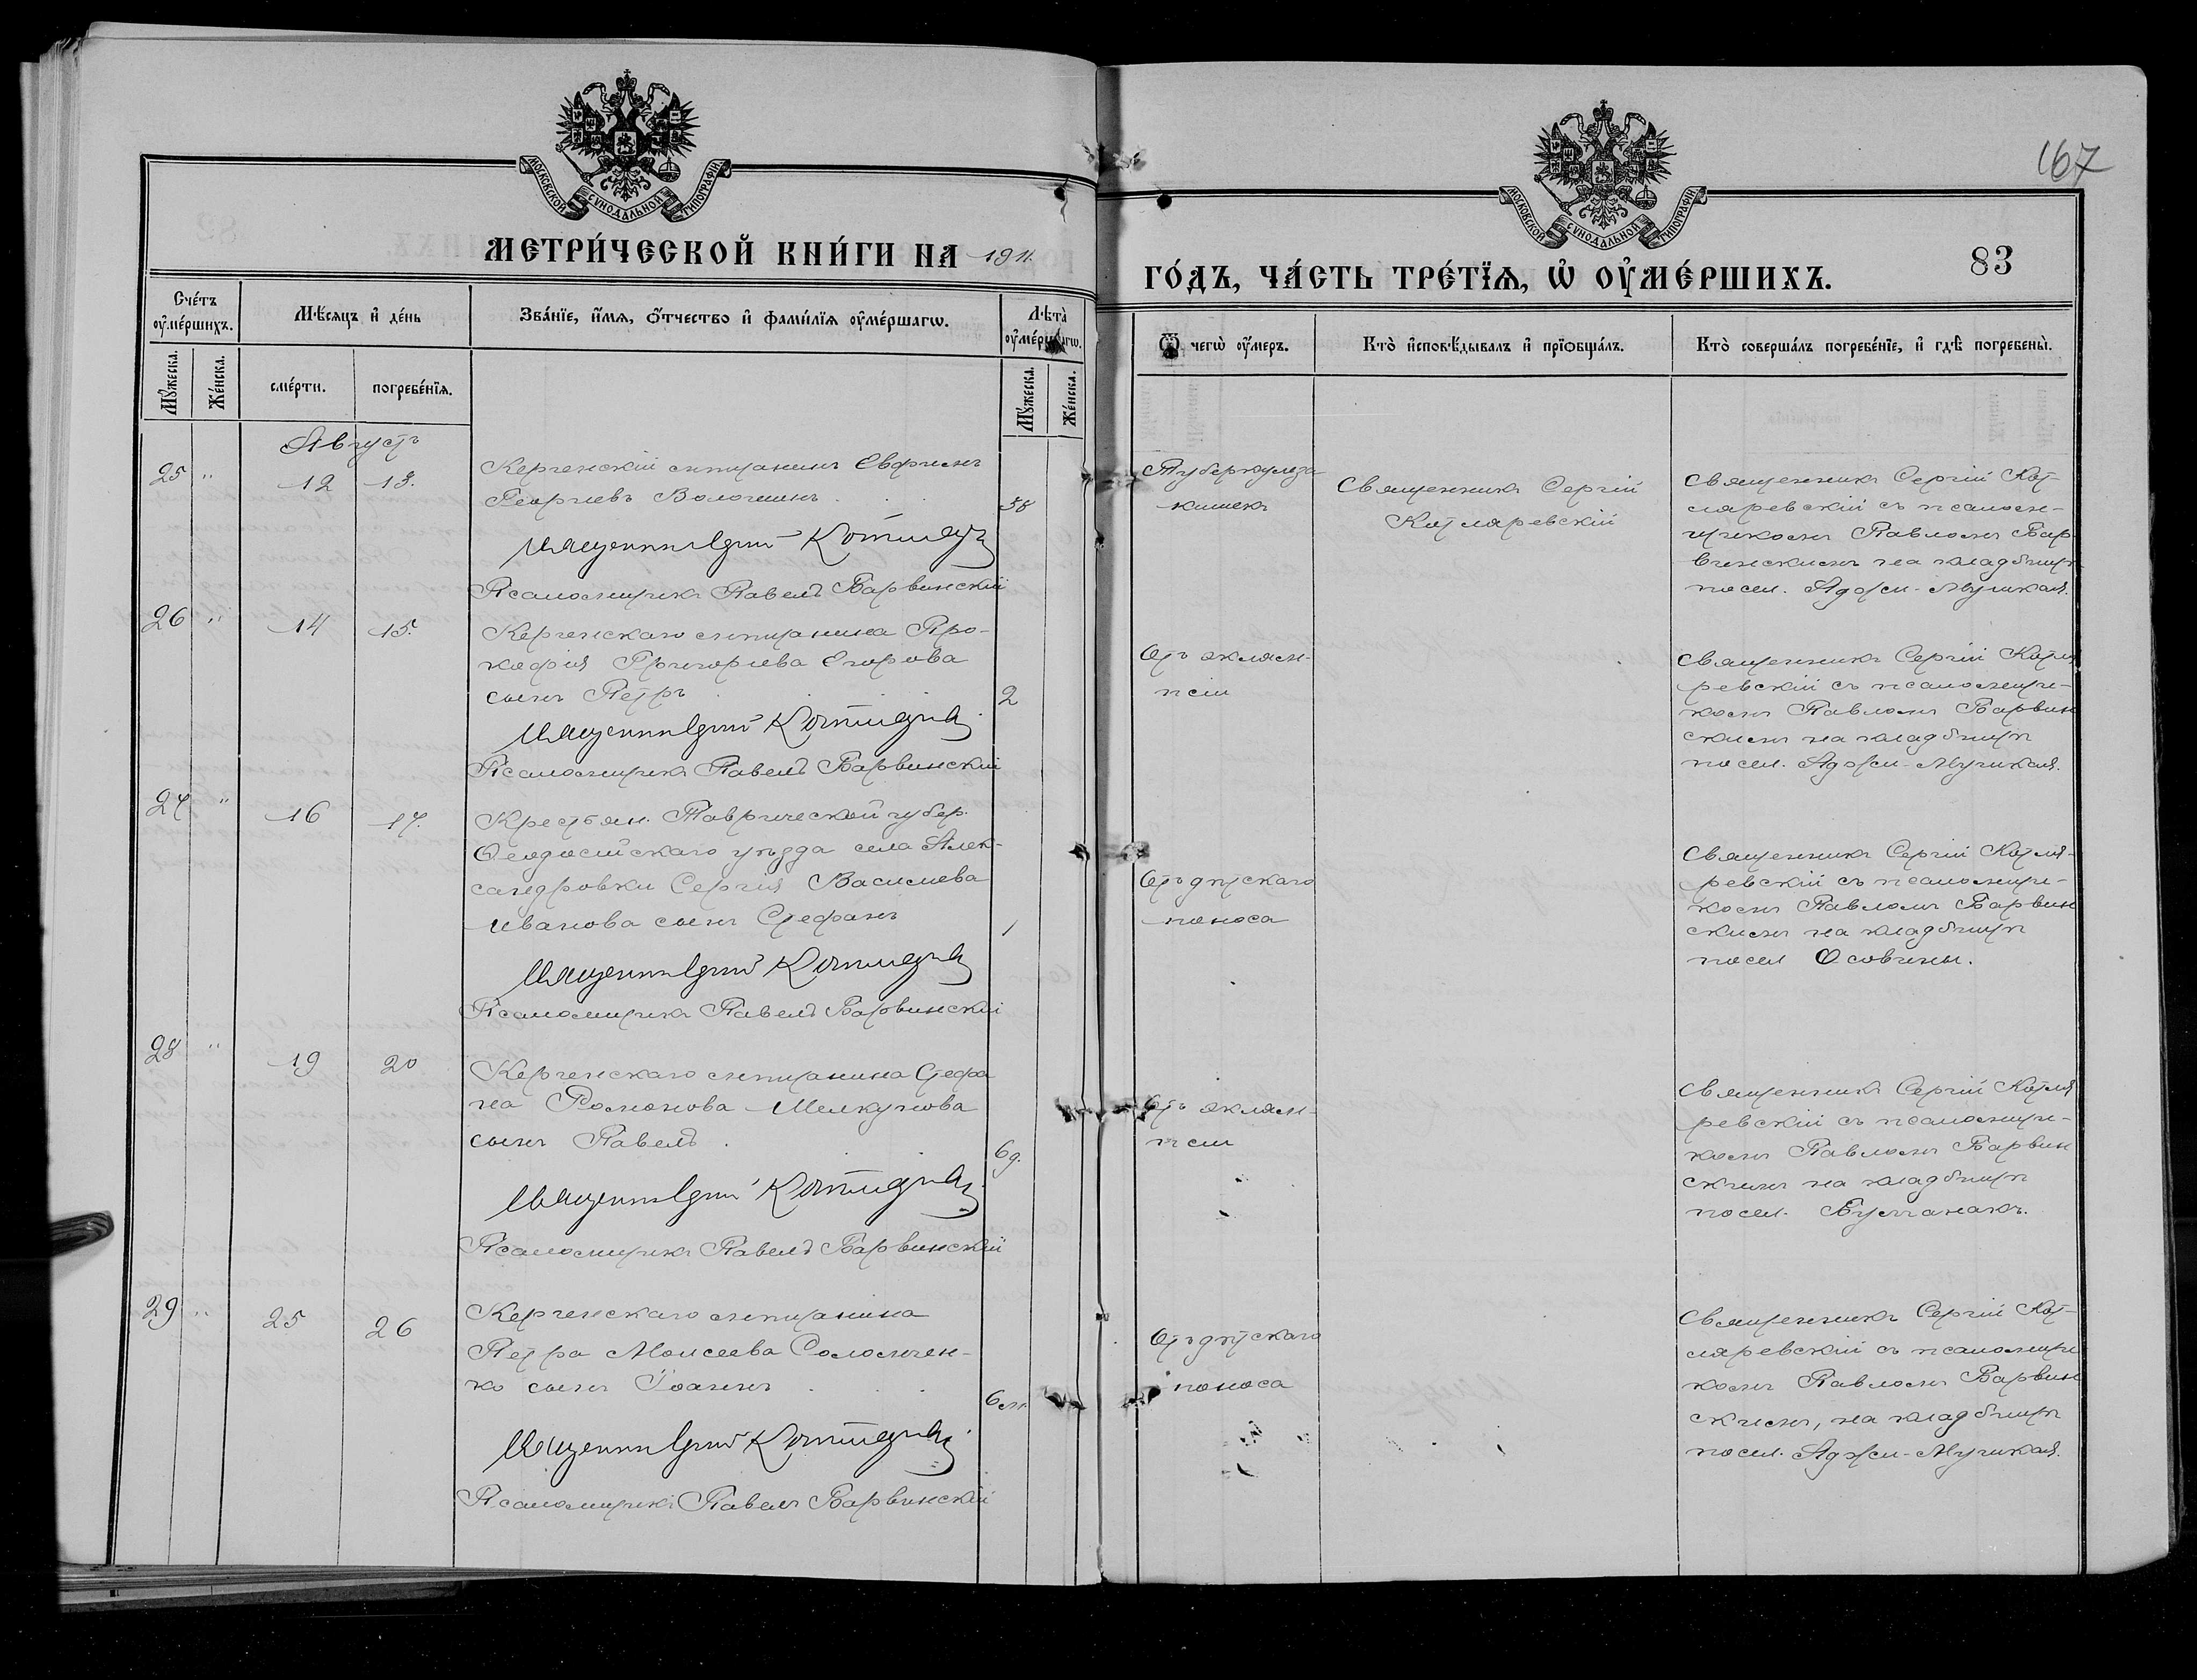 167
МОСКОВСКОЙ СѴНОДАЛЬНОЙ ТИПОГРАФІИ
МОСКОВСКОЙ СѴНОДАЛЬНОЙ ТИПОГРАФІИ
МЕТРИ́ЧЕСКОЙ КНИ́ГИ НА 1911.
ГО́ДЪ, ЧА́СТЬ ТРЕ́ТЇѦ, Ѡ҆ ОУ҆МЕ́РШИХЪ.
83
Сче́тъ оу҆ме́ршихъ.
Мꙋ́жеска.
Же́нска.
Мѣ́сяцъ и҆ де́нь
сме́рти.
погребе́нїѧ.
Зва́нїе, и҆́мѧ, ѻ҆́тчество и҆ фами́лїѧ оу҆ме́ршагѡ.
Лѣ́та оу҆ме́ршагѡ.
Мꙋ́жеска.
Же́нска.
Ѿ чегѡ̀ оу҆́меръ.
Кто̀ и҆сповѣ́дывалъ и҆ прїѡбща́лъ.
Кто̀ соверша́лъ погребе́нїе, и҆ гдѣ̀ погребены̀.
Августъ
25 " 12 13.
Керченскій мѣщанинъ Евфимъ
Георгіевъ Волошинъ . . .
58
Священник Сергий Котляр
Псаломщикъ Павелъ Барвинскій
Туберкулеза
кишекъ
Священникъ Сергій
Котляревскій
Священникъ Сергій Кот-
ляревскій съ псалом-
щикомъ Павломъ Бар
винскимъ на кладбищѣ
посел. Аджи-Мушкая.
26 " 14 15.
Керченскаго мѣщанина Про-
кофія Григорьева Егорова
сынъ Петръ . . .
2
Псаломщикъ Павелъ Барвинскій
Отъ эклям-
псіи
Священникъ Сергій Котля
ревскій съ псаломщи-
комъ Павломъ Барвин
скимъ на кладбищѣ
посел. Аджи-Мушкая.
27 " 16 17.
Крестьян. Таврической губер.
Ѳеодосійскаго уѣзда села Алек-
сандровки Сергія Васильева
Иванова сынъ Стефанъ
1
Псаломщикъ Павелъ Барвинскій
Отъ дѣтскаго
поноса
Священникъ Сергій Котля-
ревскій съ псаломщи-
комъ Павломъ Барвин
скимъ на кладбищѣ
посел Осовины.
28 " 19 20
Керченскаго мѣщанина Стефа
на Романова Шелкунова
сынъ Павелъ .
6 д.
Псаломщикъ Павелъ Барвинскій
Отъ эклям-
псіи
Священникъ Сергій Котля
ревскій съ псаломщи-
комъ Павломъ Барвин
скимъ на кладбищѣ
посел. Булганакъ.
29 " 25 26
Керченскаго мѣщанина
Петра Моисеева Соломчен-
ко сынъ Іоаннъ . . .
6 м.
Псаломщикъ Павелъ Барвинскій
Отъ дѣтскаго
поноса
Священникъ Сергій Кот-
ляревскій съ псаломщи
комъ Павломъ Барвин
скимъ, на кладбищѣ
посел. Аджи-Мушкая.